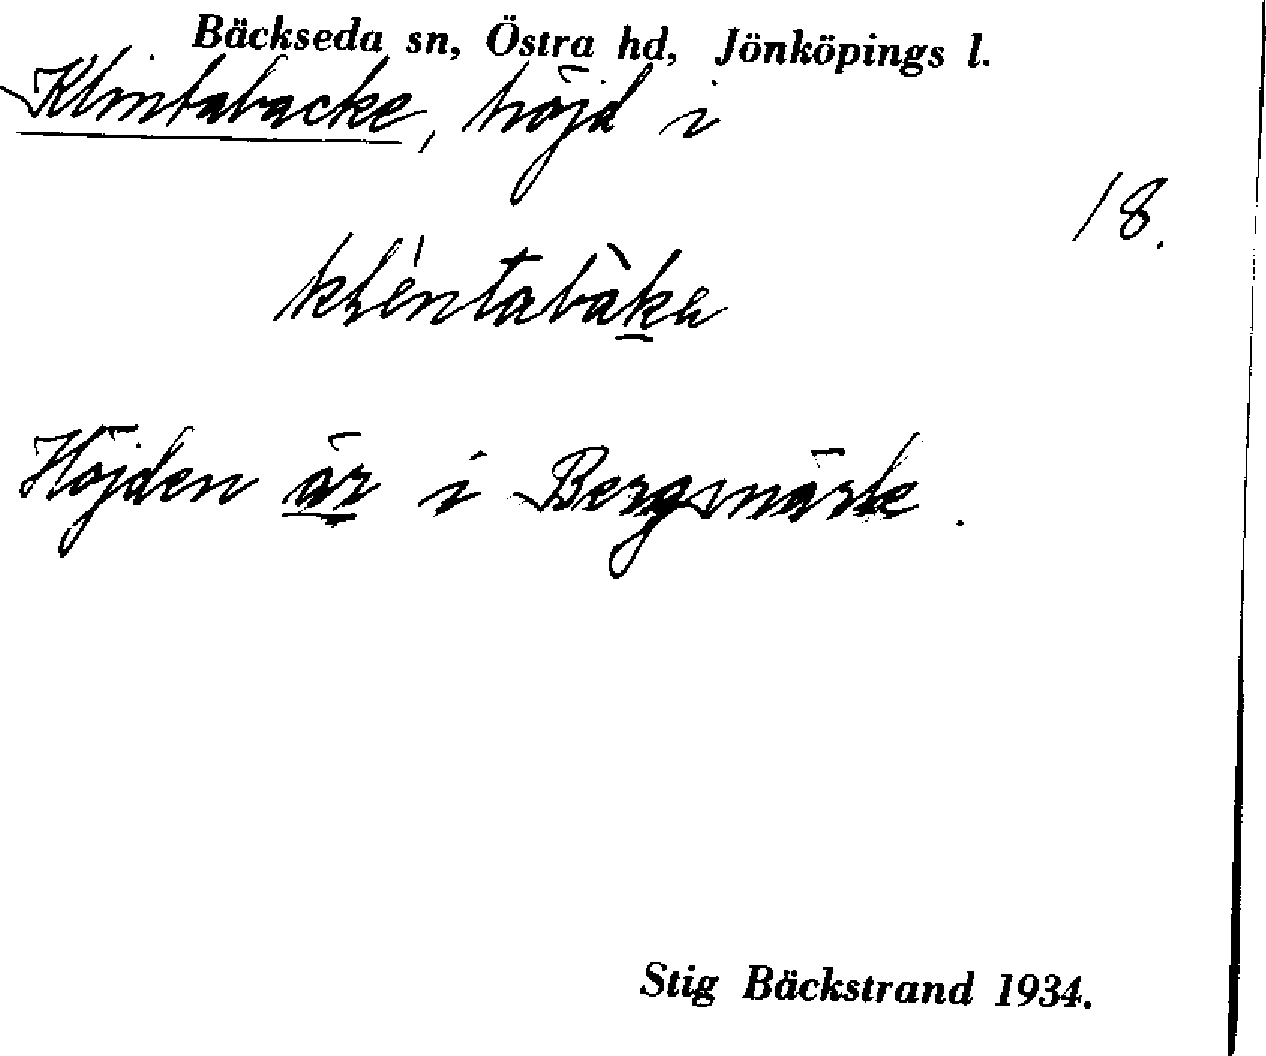 Bäckseda sn, Östra hd, Jönköpings l.
Klintabacke, höjd i
18.
kléntabàka
Höjden är i Bergsmärke.
Stig Bäckstrand 1934.